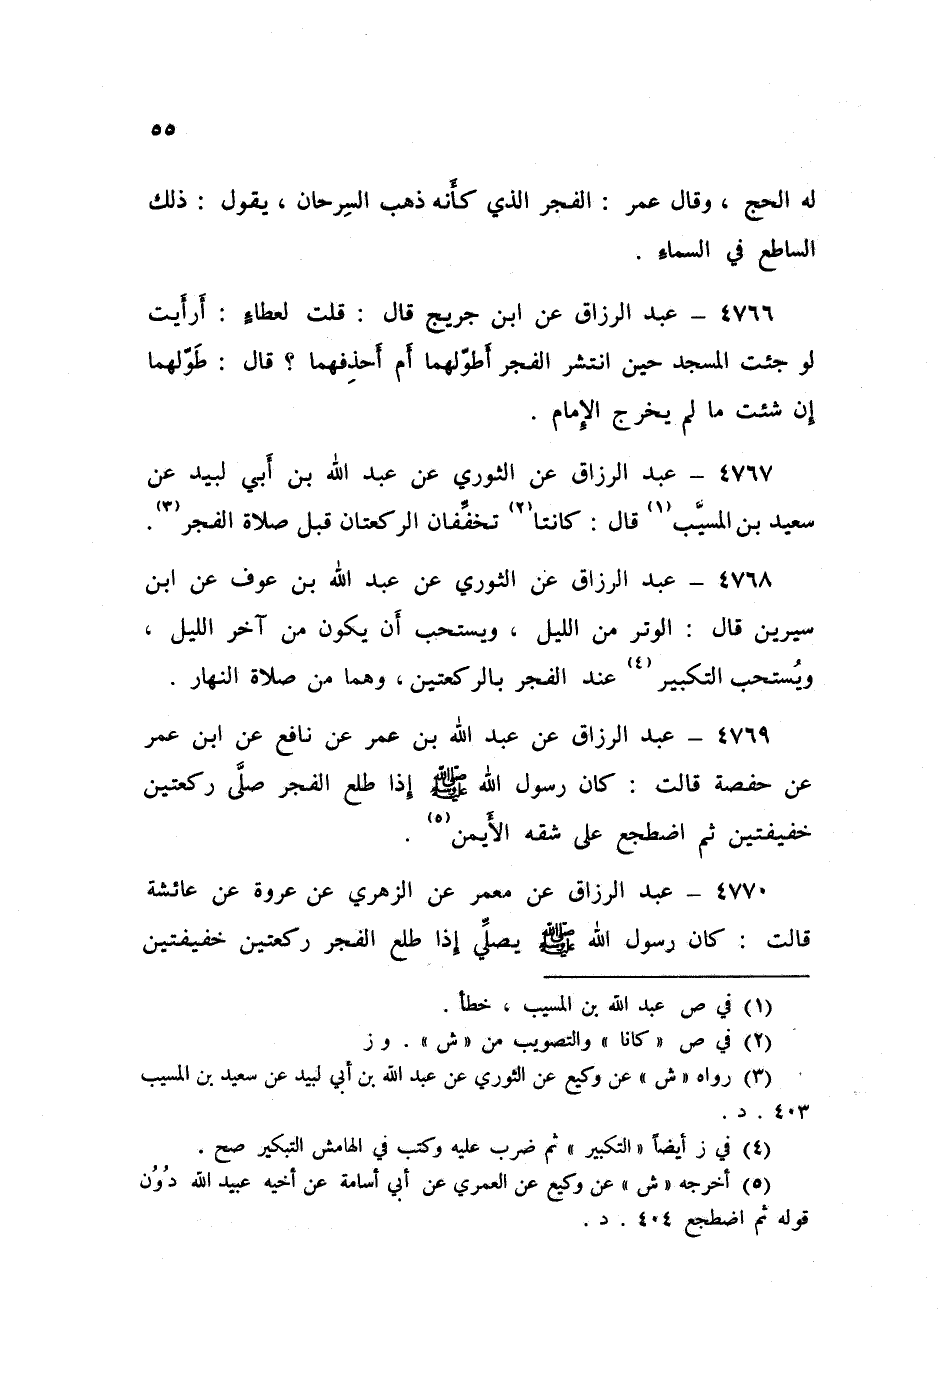 ٥٥
له الحج ، وقال عمر : الفجر الذي كأَنه ذهب السِرحان ، يقول : ذلك
الساطع في السماء .
٤٧٦٦ – عبد الرزاق عن ابن جريج قال : قلت لعطاءٍ : أَرأَيت
لو جئت المسجد حين انتشر الفجر أَطوّلهما أَم أَحذِفهما ؟ قال : طَوّلهما
إن شئت ما لم يخرج الإِمام .
٤٧٦٧ – عبد الرزاق عن الثوري عن عبد الله بن أَبي لبيد عن
سعيد بن المسيَّب(١) قال : كانتا(٢) تخفَّفان الركعتان قبل صلاة الفجر(٣).
٤٧٦٨ – عبد الرزاق عن الثوري عن عبد الله بن عوف عن ابن
سيرين قال : الوتر من الليل ، ويستحب أَن يكون من آخر الليل ،
ويُستحب التكبير(٤) عند الفجر بالركعتين ، وهما من صلاة النهار .
٤٧٦٩ – عبد الرزاق عن عبد الله بن عمر عن نافع عن ابن عمر
عن حفصة قالت : كان رسول الله ﷺ إِذا طلع الفجر صلَّى ركعتين
خفيفتين ثم اضطجع على شقه الأَيمن(٥) .
٤٧٧٠ – عبد الرزاق عن معمر عن الزهري عن عروة عن عائشة
قالت : كان رسول الله ﷺ يصلِّي إِذا طلع الفجر ركعتين خفيفتين
(١) في ص عبد الله بن المسيب ، خطأ .
(٢) في ص « كانا » والتصويب من « ش » . و ز
(٣) رواه « ش » عن وكيع عن الثوري عن عبد الله بن أبي لبيد عن سعيد بن المسيب
٤٠٣ . د .
(٤) في ز أيضاً « التكبير » ثم ضرب عليه وكتب في الهامش التبكير صح .
(٥) أخرجه « ش » عن وكيع عن العمري عن أبي أسامة عن أخيه عبيد الله دُوُن
قوله ثم اضطجع ٤٠٤ . د .